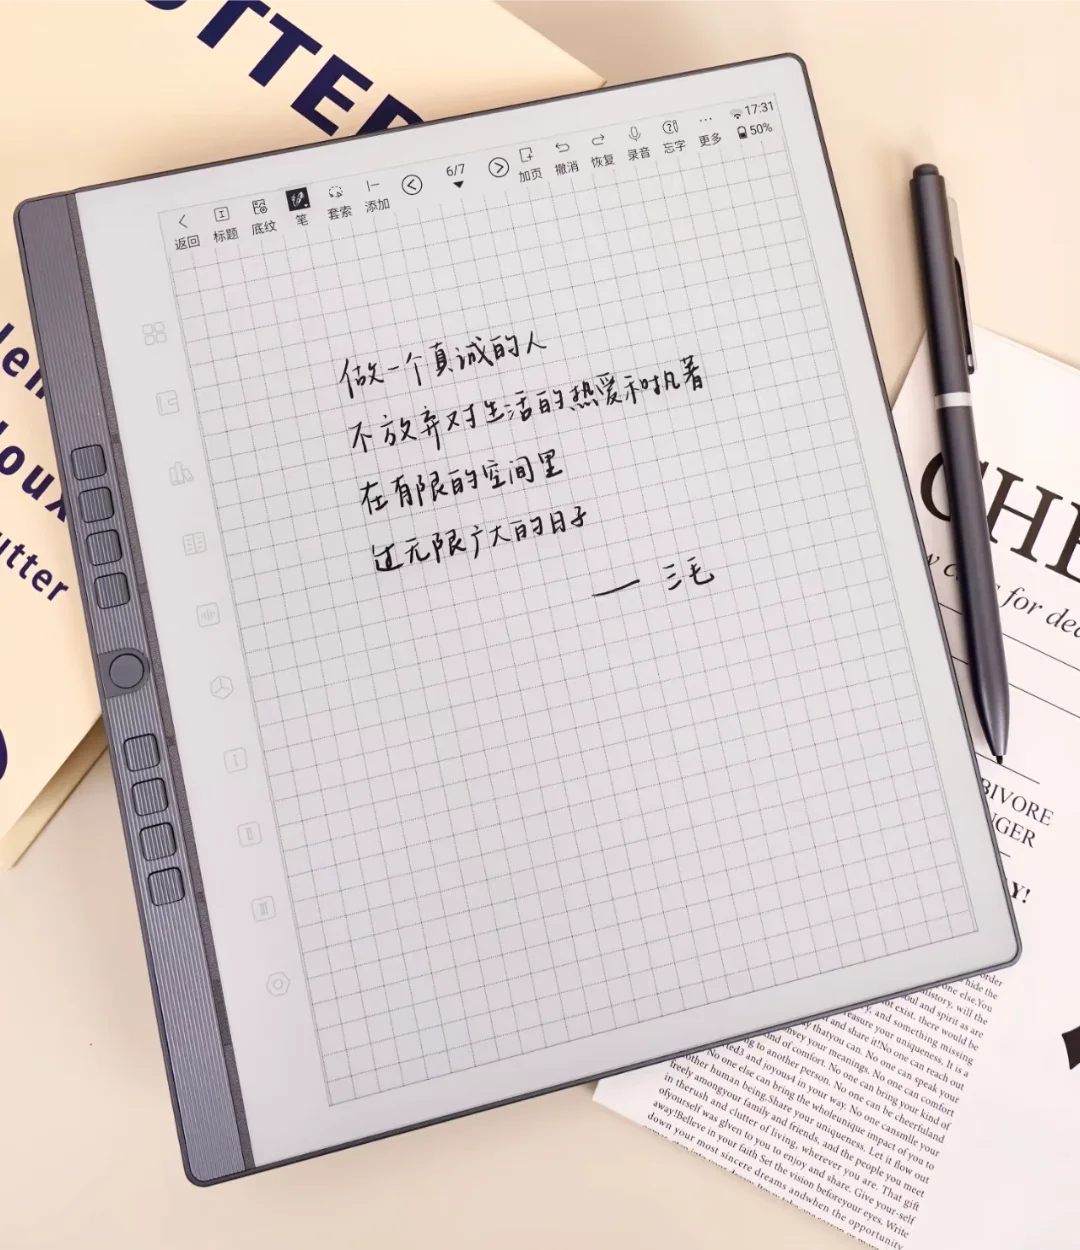 17:31
50%
返回 标题 底纹 笔 套索 添加 6/7 加页 撤消 恢复 录音 忘字 更多
做一个真诚的人
不放弃对生活的热爱和执着
在有限的空间里
过无限广大的日子
— 三毛
I
II
III
TTER
oux
utter
CHE
for dea
BIVORE
GER
Y!
order
hide the
one else.You
history, will the
ul and spirit as are
not exist, there would be
and something missing
easure your uniqueness. It is a
and share it!No one can reach out
say thatyou can. No one can speak your
nvey your meanings. No one can comfort
kind of comfort. No one can bring your kind of
g to another person. No one can be cheerfuland
and joyous4 in your way. No one cansmlle your
No one else can bring the wholeunique impact of you to
other human being.Share your uniqueness. Let it flow out
freely amongyour family and friends, and the people you meet
in therush and clutter of living, wherever you are. That gift
ofyourself was glven to you to enjoy and share. Give your-self
away!Believe in your faith Set the vision beforeyour eyes. Write
down your most sincere dreams andwhen the opportunity